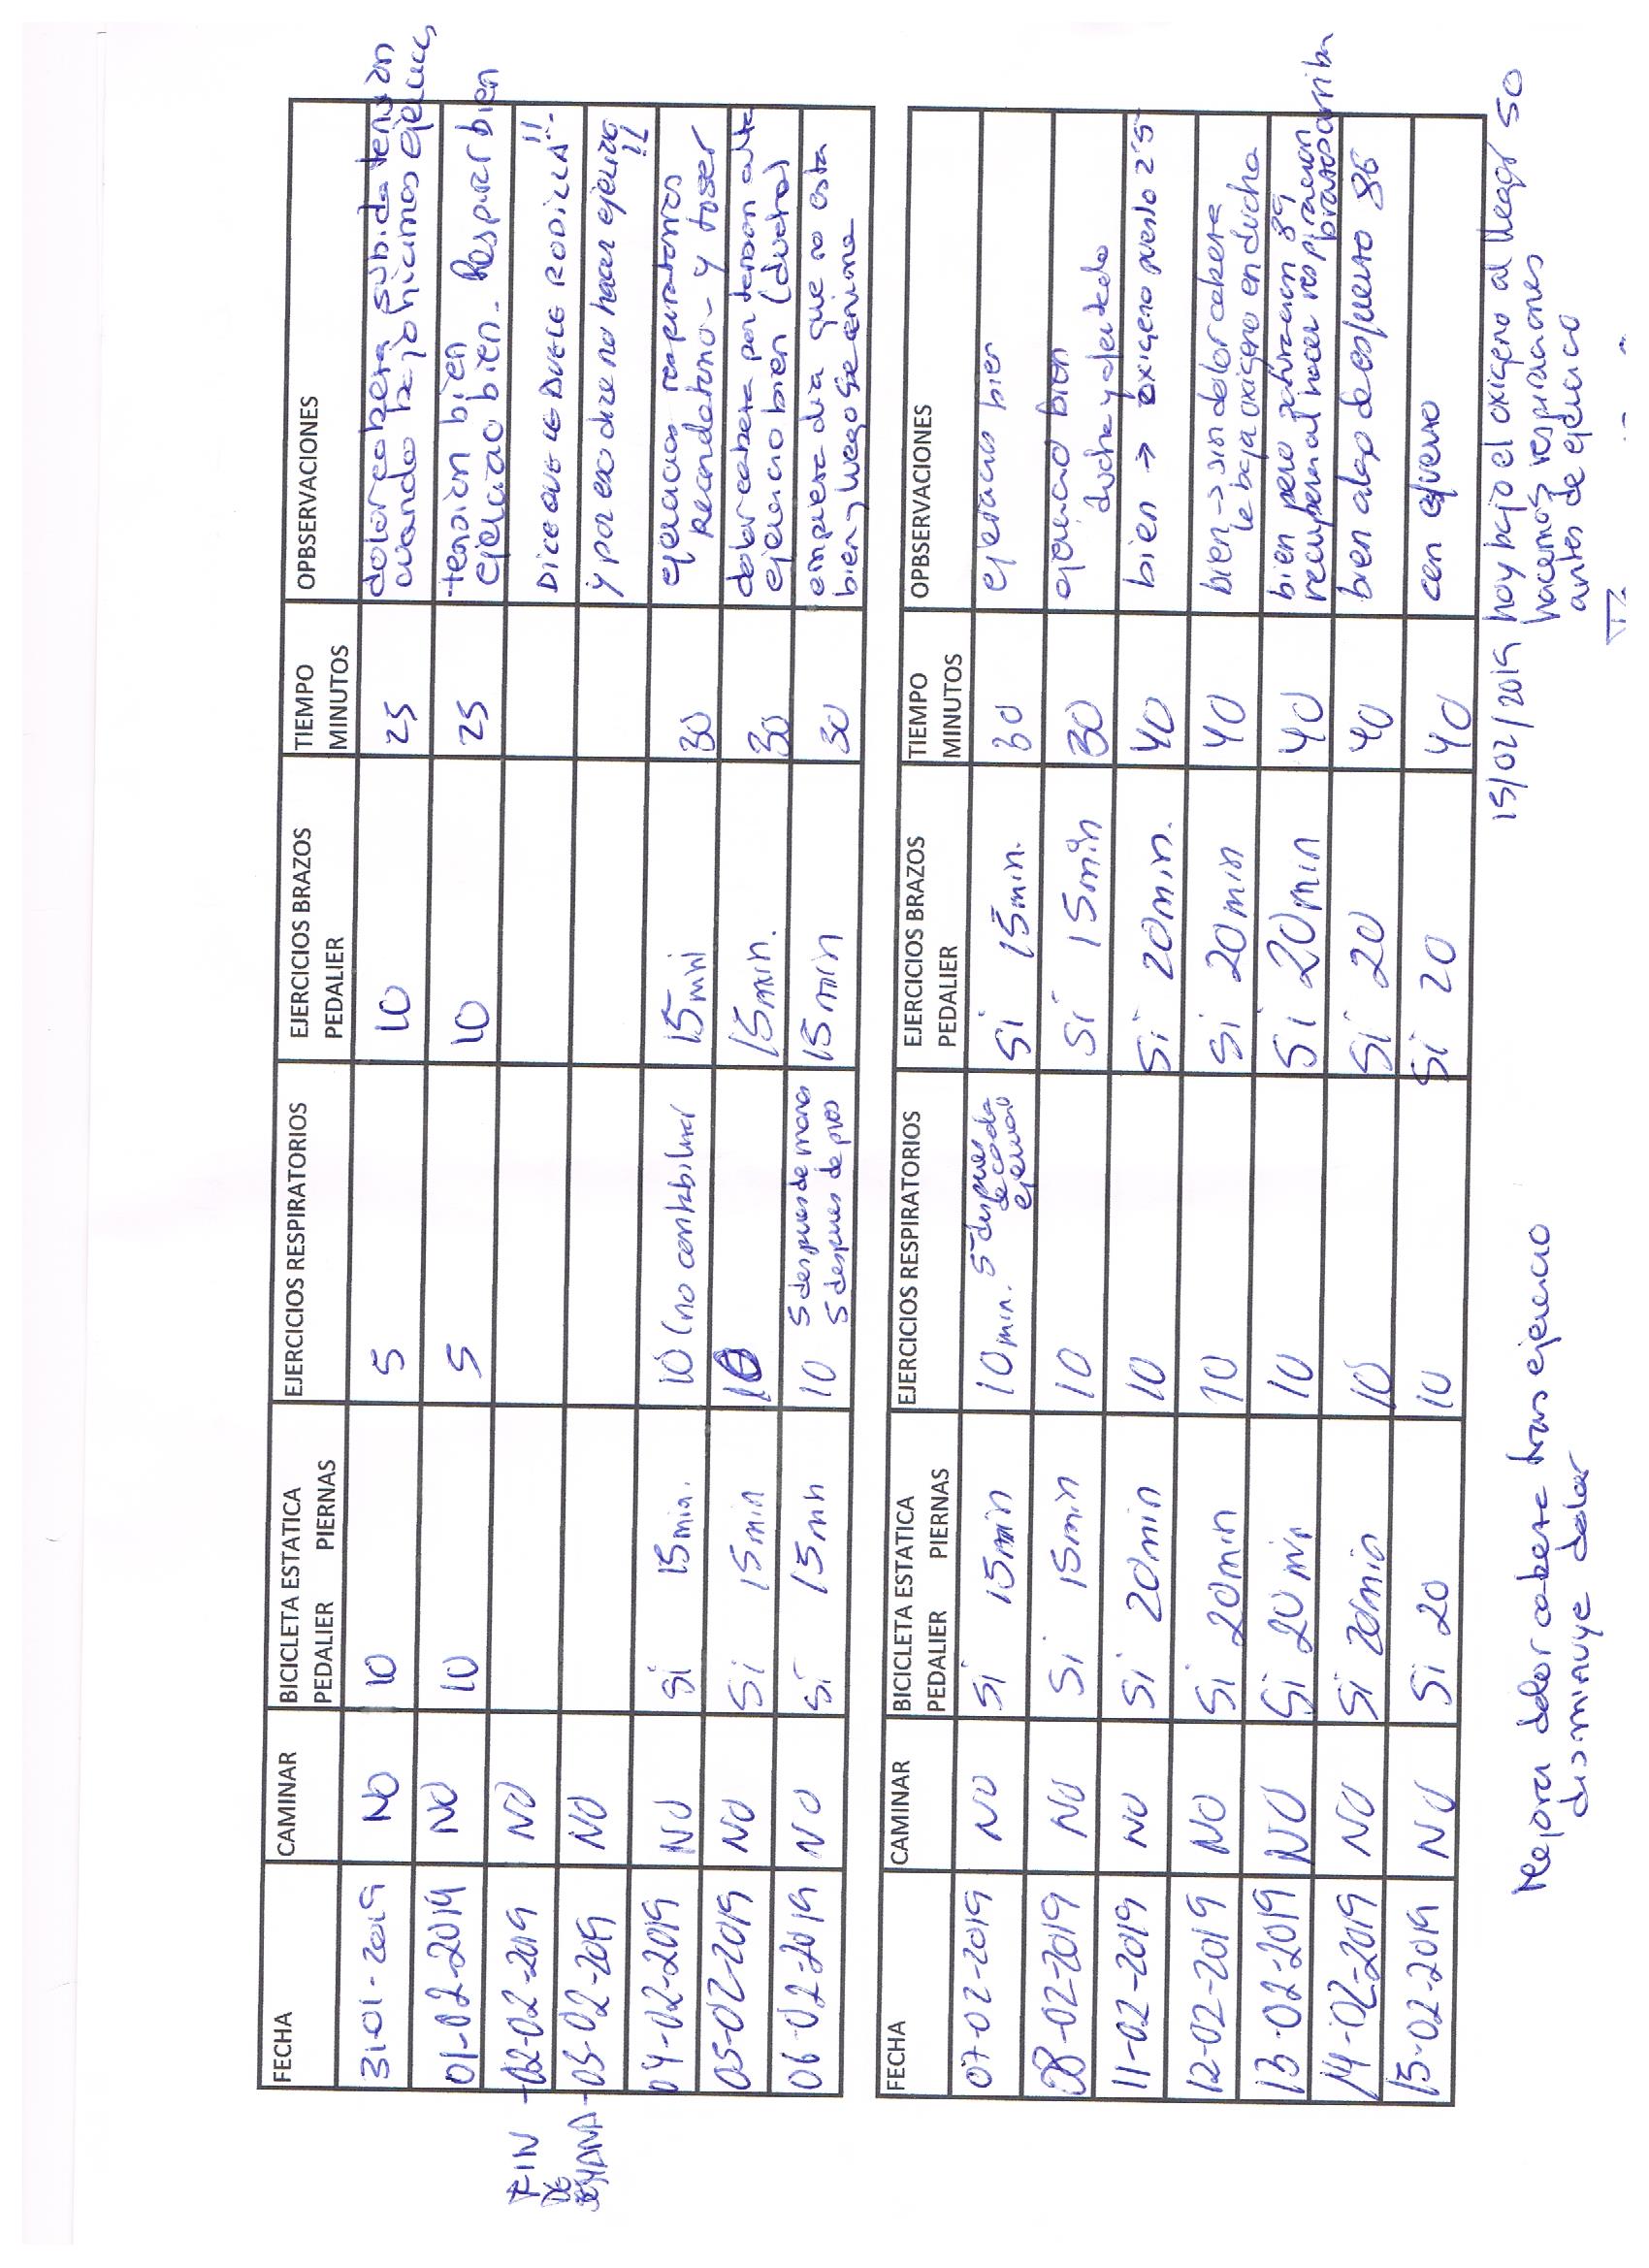 FECHA CAMINAR BICICLETA ESTATICA EJERCICIOS RESPIRATORIOS EJERCICIOS BRAZOS TIEMPO OPBSERVACIONES
PEDALIER PIERNAS PEDALIER MINUTOS
31-01-2019 NO 10 5 10 25 dolor cabeza subida tension
cuando bajo hicimos ejercicios
01-02-2019 NO 10 5 10 25 tension bien
ejercicio bien. Respirer bien
FIN DE SEMANA
02-02-2019 NO DICE QUE LE DUELE RODILLA!!
03-02-2019 NO y por eso dice no hacer ejercicio!!
04-02-2019 NO Si 15 min. 10 (no contabiliza) 15 min 30 ejercicios respiratorios
Recordatorio - y toser
05-02-2019 NO Si 15 min 10 15 min. 30 dolor cabeza por tension alta
ejercicio bien (ducha)
06-02-2019 NO Si 15 min 10 5 despues de manos 15 min 30 empieza dia que no esta
5 despues de pies bien y luego se anima
FECHA CAMINAR BICICLETA ESTATICA EJERCICIOS RESPIRATORIOS EJERCICIOS BRAZOS TIEMPO OPBSERVACIONES
PEDALIER PIERNAS PEDALIER MINUTOS
07-02-2019 NO Si 15 min 10 min. 5 despues de cada ejercicio Si 15 min. 30 ejercicios bien
08-02-2019 NO Si 15 min 10 Si 15 min 30 ejercicio bien
ducha y afeitado
11-02-2019 NO Si 20 min 10 Si 20 min. 40 bien → oxigeno puesto 2'5
12-02-2019 NO Si 20 min 10 Si 20 min 40 bien → sin dolor cabeza
le baja oxigeno en ducha
13-02-2019 NO Si 20 min 10 Si 20 min 40 bien pero saturacion 89
recupera al hacer respiracion brazos arriba
14-02-2019 NO Si 20 min 10 Si 20 40 bien algo de esfuerzo 86
15-02-2019 NO Si 20 10 Si 20 40 con esfuerzo
15/02/2019 hoy bajo el oxigeno al llegar 50
hacemos respiraciones
antes de ejercicio
Mejora dolor cabeza tras ejercicio
disminuye dolor